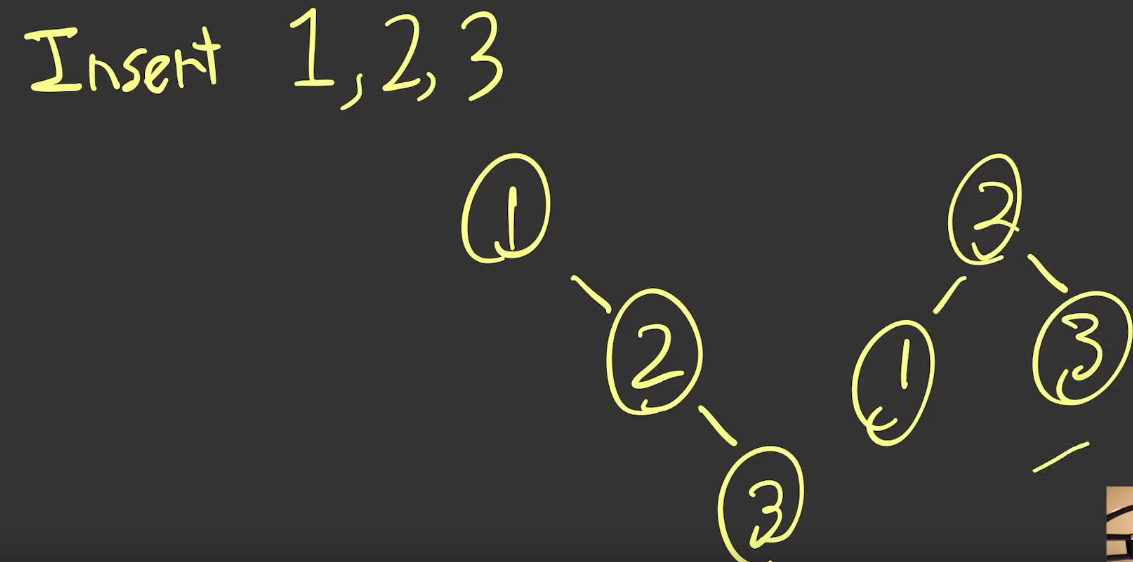 Insert 1, 2, 3
1
2
2
1
3
3